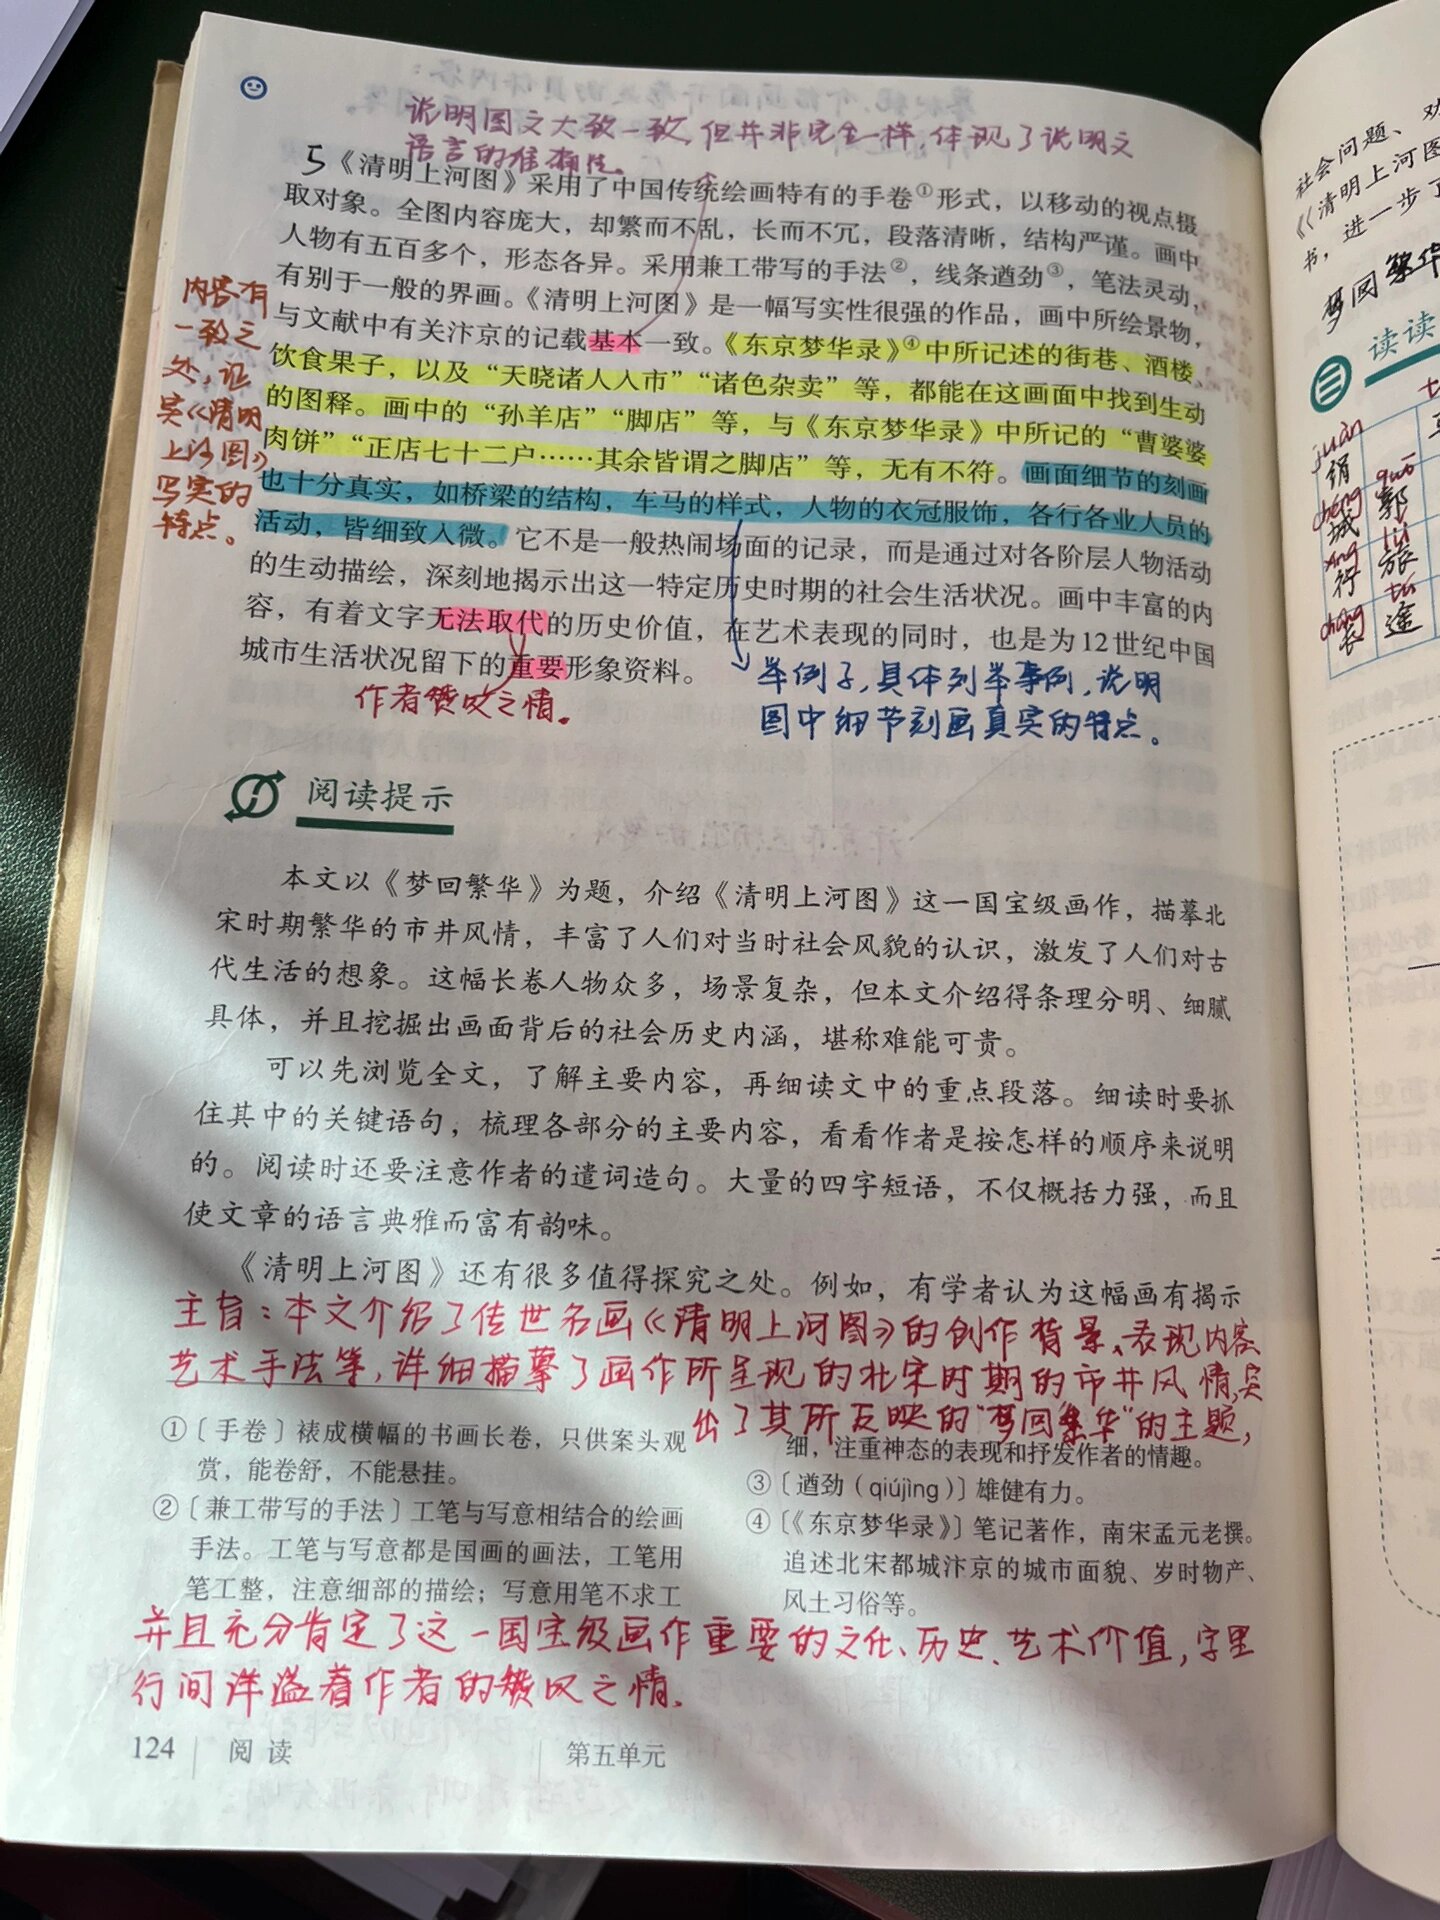 说明图文大致一致，但并非完全一样，体现了说明文
语言的准确性。
5《清明上河图》采用了中国传统绘画特有的手卷①形式，以移动的视点摄
取对象。全图内容庞大，却繁而不乱，长而不冗，段落清晰，结构严谨。画中
人物有五百多个，形态各异。采用兼工带写的手法②，线条遒劲③，笔法灵动，
有别于一般的界画。《清明上河图》是一幅写实性很强的作品，画中所绘景物，
与文献中有关汴京的记载基本一致。《东京梦华录》④中所记述的街巷、酒楼、
饮食果子，以及“天晓诸人入市”“诸色杂卖”等，都能在这画面中找到生动
的图释。画中的“孙羊店”“脚店”等，与《东京梦华录》中所记的“曹婆婆
肉饼”“正店七十二户……其余皆谓之脚店”等，无有不符。画面细节的刻画
也十分真实，如桥梁的结构，车马的样式，人物的衣冠服饰，各行各业人员的
活动，皆细致入微。它不是一般热闹场面的记录，而是通过对各阶层人物活动
的生动描绘，深刻地揭示出这一特定历史时期的社会生活状况。画中丰富的内
容，有着文字无法取代的历史价值，在艺术表现的同时，也是为12世纪中国
城市生活状况留下的重要形象资料。
内容有
一致之
处，证
实《清明
上河图》
写实的
特点。
作者赞叹之情。
举例子，具体列举事例，说明
图中细节刻画真实的特点。
阅读提示
本文以《梦回繁华》为题，介绍《清明上河图》这一国宝级画作，描摹北
宋时期繁华的市井风情，丰富了人们对当时社会风貌的认识，激发了人们对古
代生活的想象。这幅长卷人物众多，场景复杂，但本文介绍得条理分明、细腻
具体，并且挖掘出画面背后的社会历史内涵，堪称难能可贵。
可以先浏览全文，了解主要内容，再细读文中的重点段落。细读时要抓
住其中的关键语句，梳理各部分的主要内容，看看作者是按怎样的顺序来说明
的。阅读时还要注意作者的遣词造句。大量的四字短语，不仅概括力强，而且
使文章的语言典雅而富有韵味。
《清明上河图》还有很多值得探究之处。例如，有学者认为这幅画有揭示
主旨：本文介绍了传世名画《清明上河图》的创作背景、表现内容
艺术手法等，详细描摹了画作所呈现的北宋时期的市井风情，突
出了其所反映的“梦回繁华”的主题，
①〔手卷〕裱成横幅的书画长卷，只供案头观
赏，能卷舒，不能悬挂。
②〔兼工带写的手法〕工笔与写意相结合的绘画
手法。工笔与写意都是国画的画法，工笔用
笔工整，注意细部的描绘；写意用笔不求工
细，注重神态的表现和抒发作者的情趣。
③〔遒劲（qiújìng）〕雄健有力。
④〔《东京梦华录》〕笔记著作，南宋孟元老撰。
追述北宋都城汴京的城市面貌、岁时物产、
风土习俗等。
并且充分肯定了这一国宝级画作重要的文化、历史、艺术价值，字里
行间洋溢着作者的赞叹之情。
124
阅读
第五单元
社会问题、
《《清明上河图
书，进一步了
梦回繁华
读读
juàn
绢
chéng
城
郭
háng
行
lǚ
旅
cháng
长
tú
途